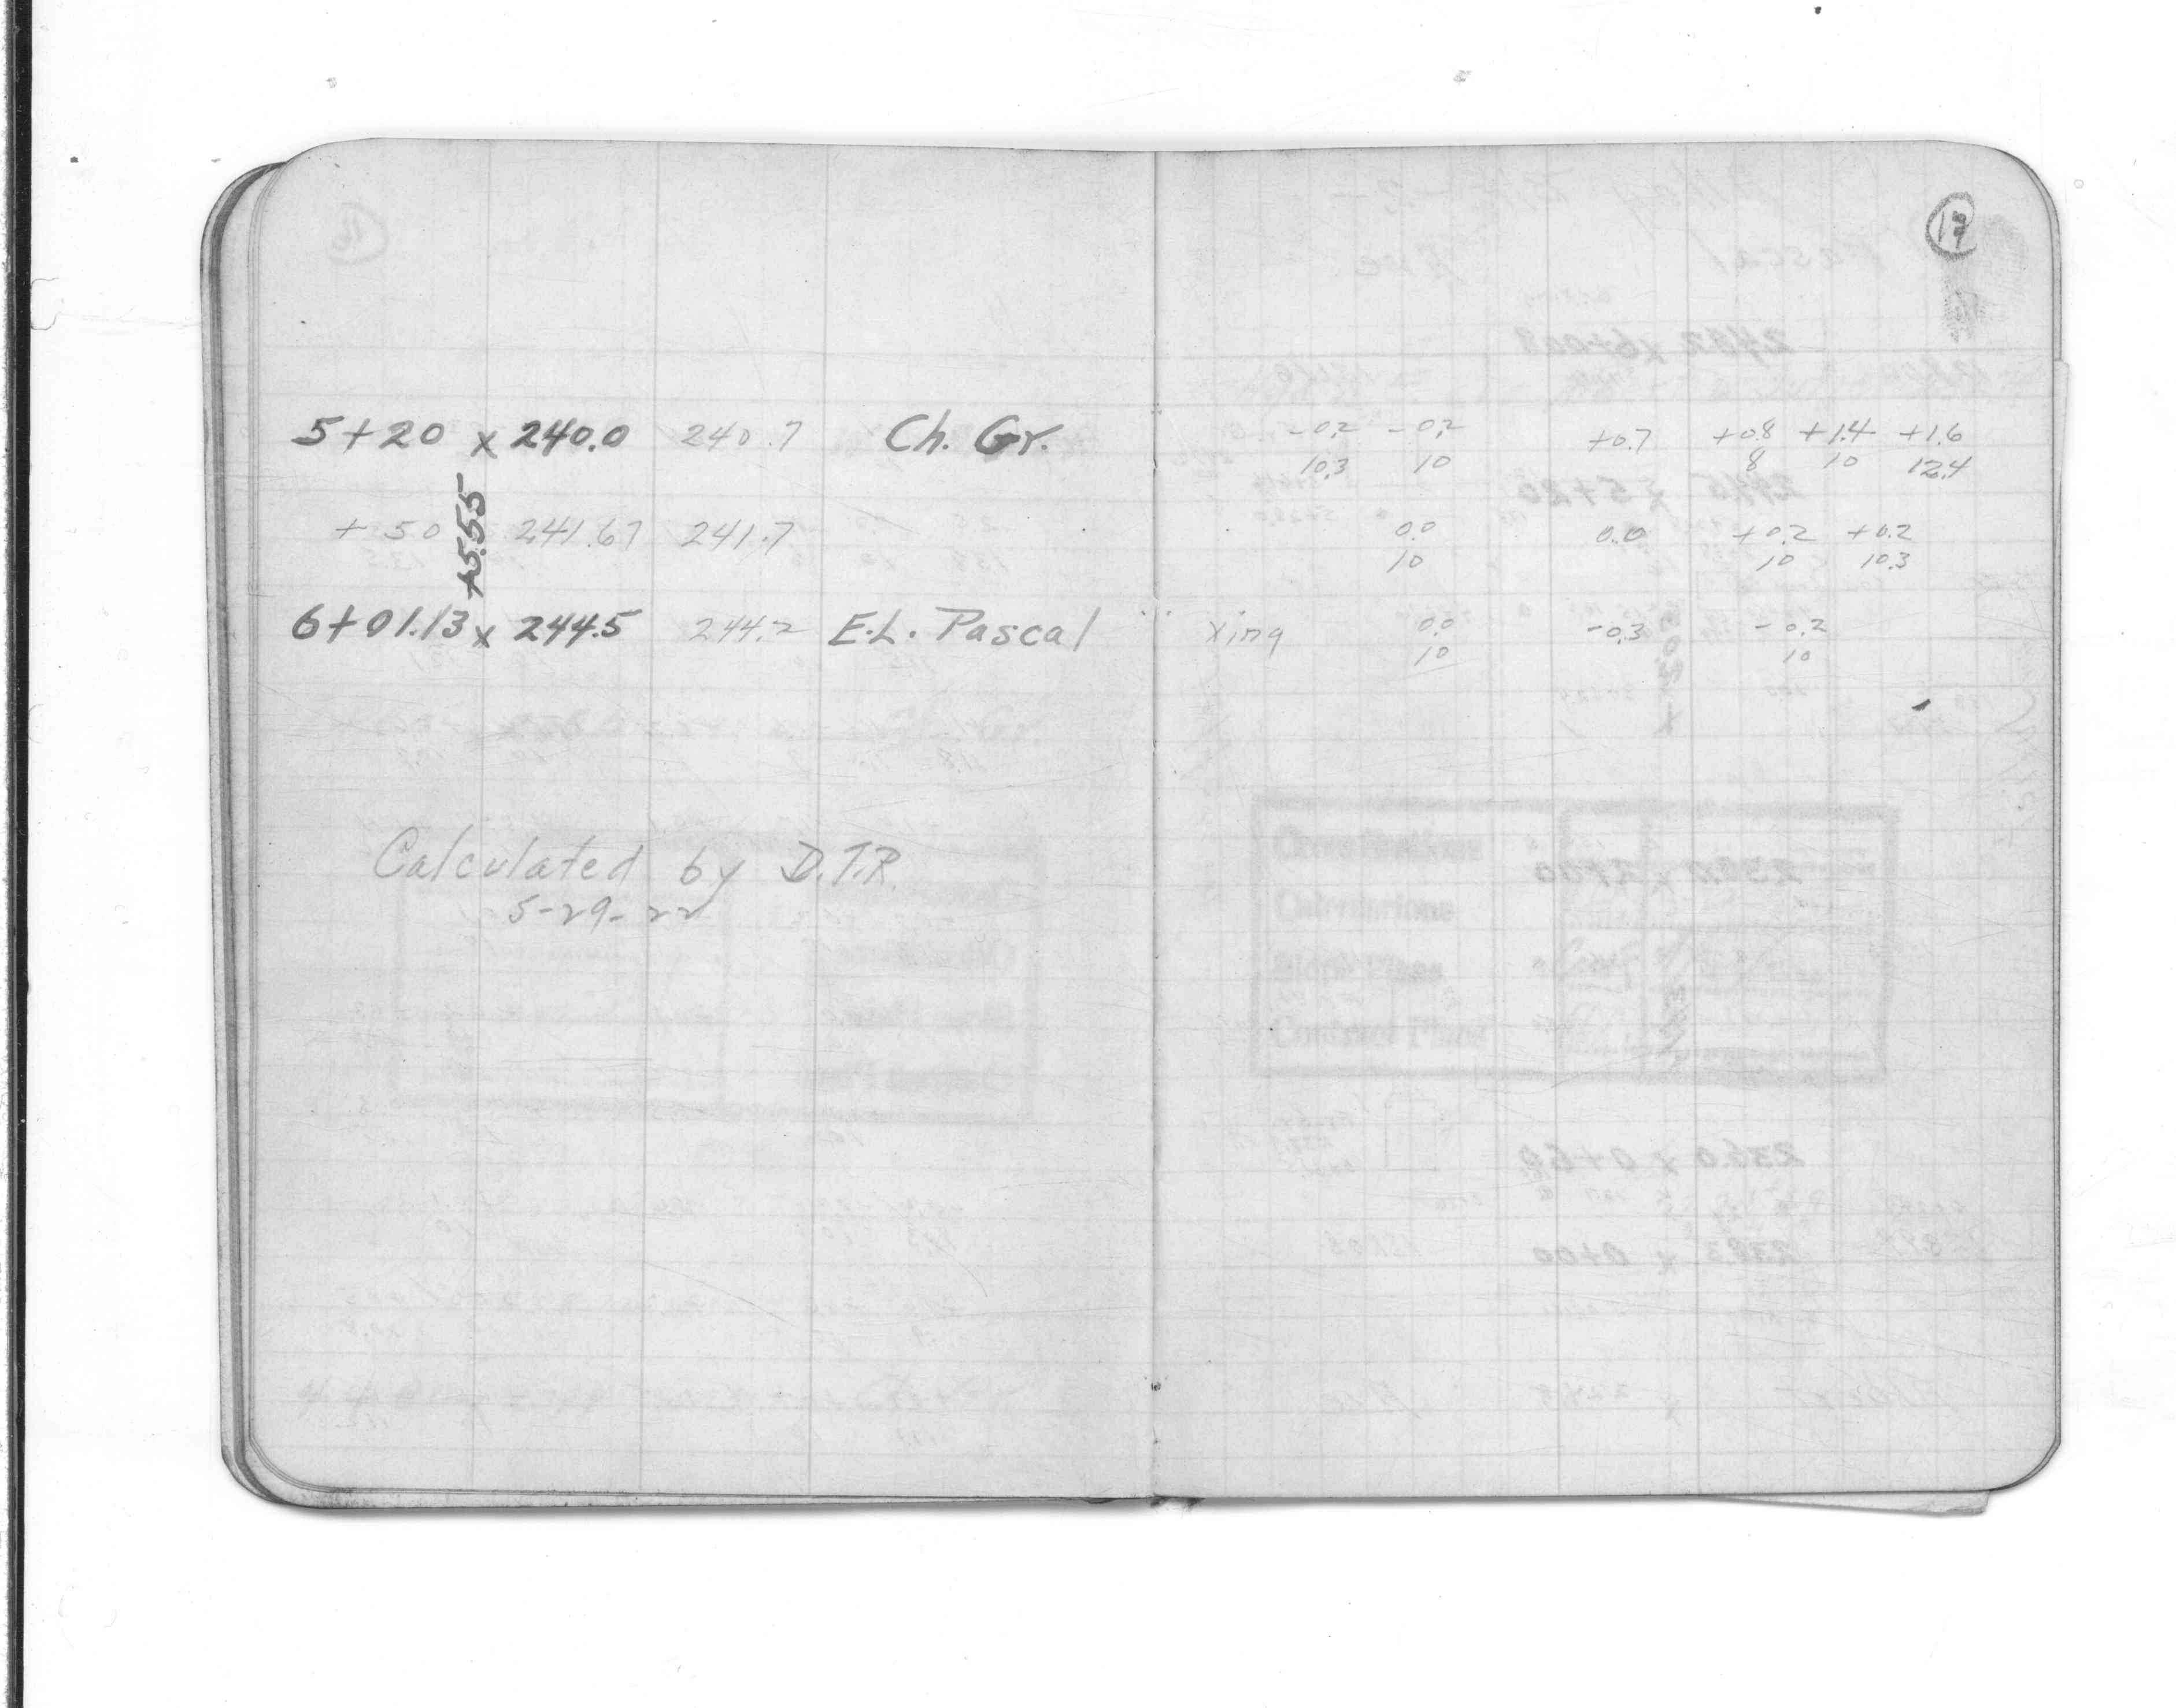 17
5+20 x 240.0 240.7 Ch. Gr. -0.2 -0.2 +0.7 +0.8 +1.4 +1.6
10.3 10 8 10 12.4
+5.555
+50 241.67 241.7 0.0 0.0 +0.2 +0.2
10 10 10.3
6+01.13 x 244.5 244.2 E.L. Pascal Xing 0.0 -0.3 -0.2
10 10
Calculated by D.T.R.
5-29-22